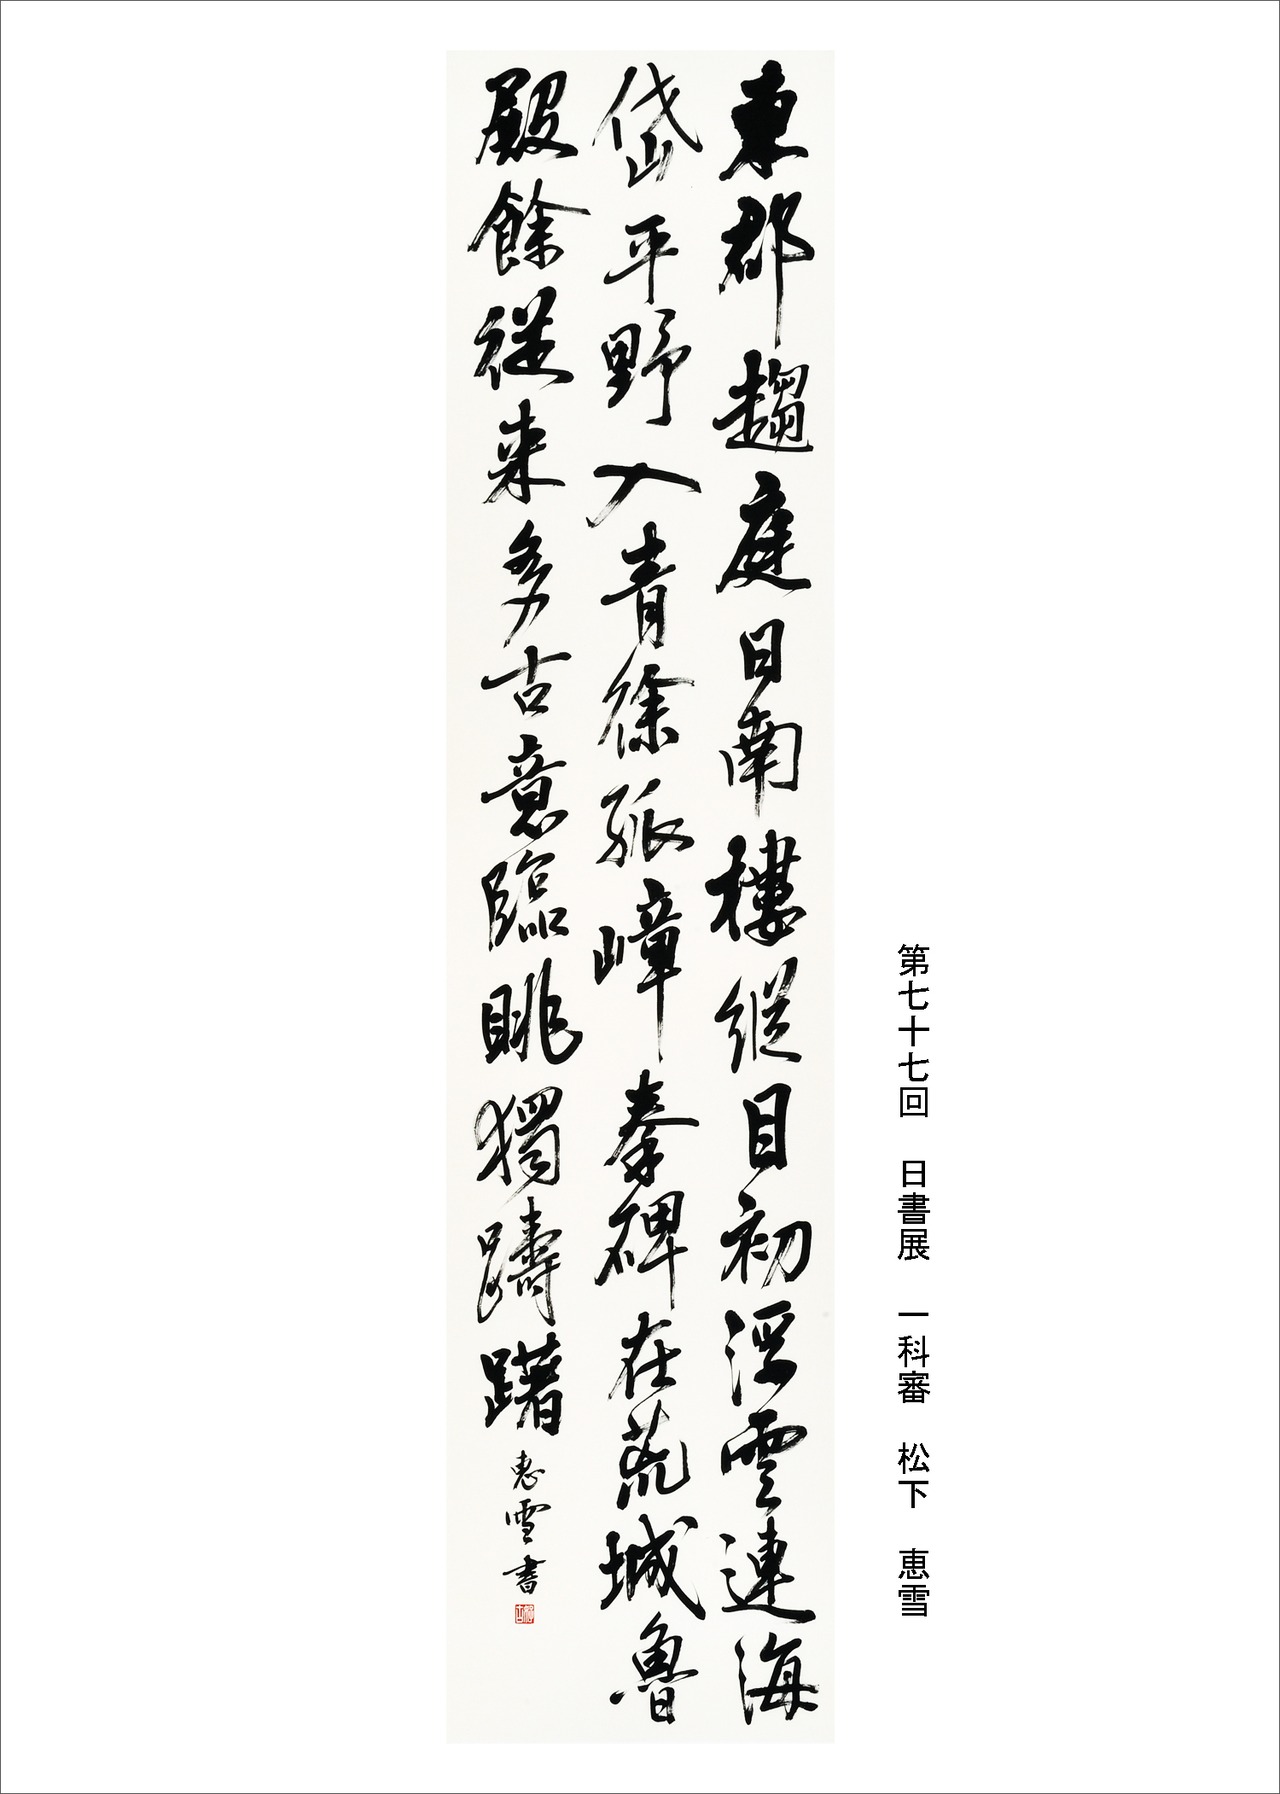 第七十七回　日書展　一科審　松下　恵雪
東郡趨庭日南樓縱目初浮雲連海
岱平野入青徐孤嶂秦碑在荒城魯
殿餘從来多古意臨眺獨躊躇
惠雪書